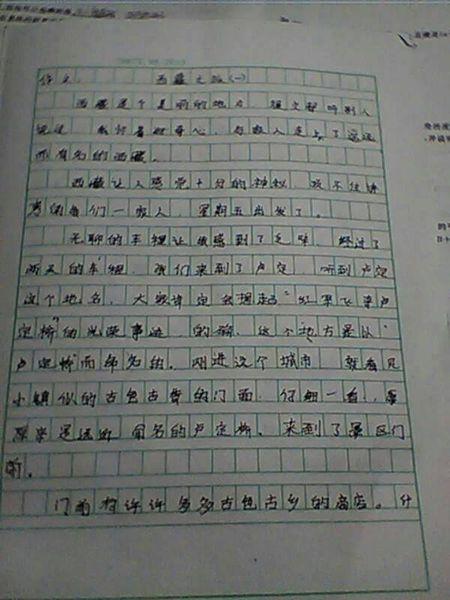 作文: 西藏之旅(一)
西藏这个美丽的地方,很久都听别人
说过,我怀着好奇心,与家人走上了遥远
而有名的西藏。
西藏让人感觉十分的神秘,
的我们一家人,星期五出发了。
无聊的车程让我感到了乏味,经过了
两天的车程,我们来到了卢定,听到卢定
这个地名,大家肯定会想起"红军飞夺卢
定桥"的光荣事迹,的确,这个地方是以"
卢定桥"而命名的。刚进这个城市,就看见
小镇似的古色古香的门面,仔细一看,
远近闻名的卢定桥。来到了景区门
前。
门前有许许多多古色古乡的商店。什